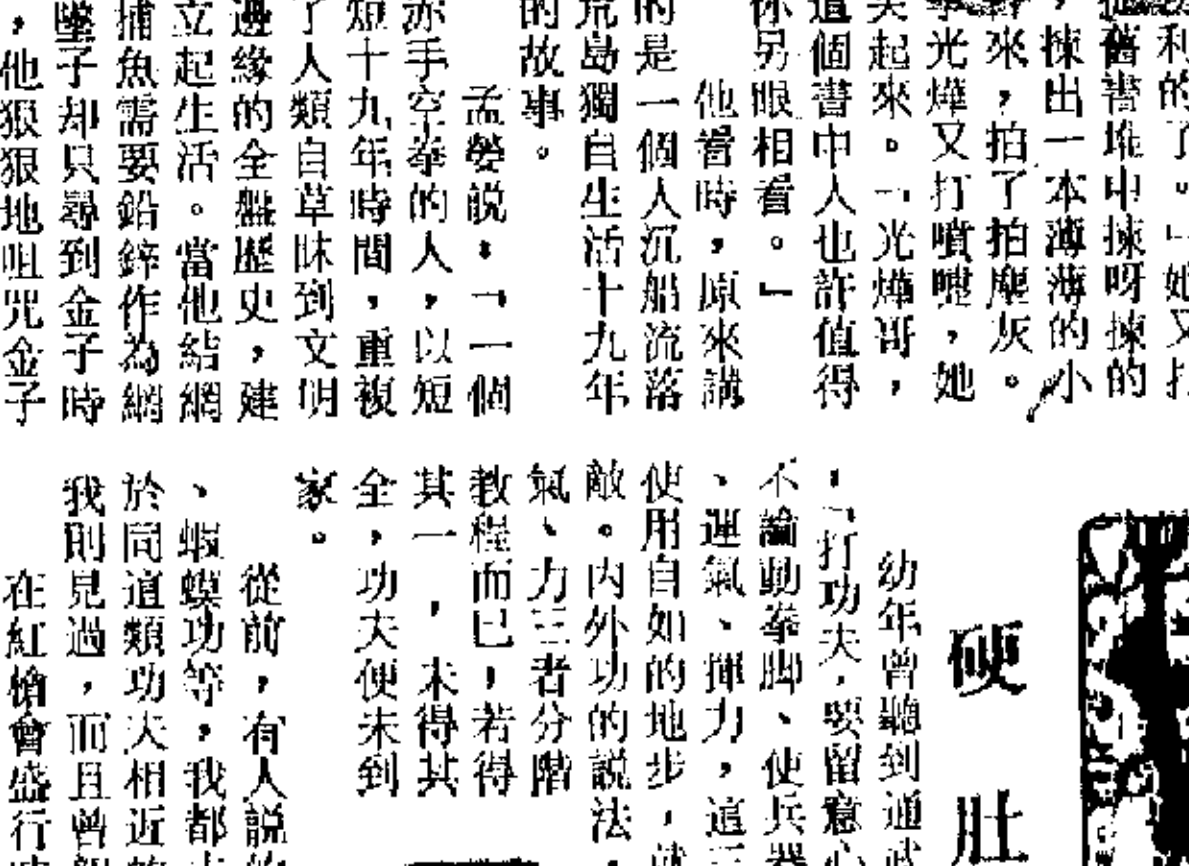 利的了。﹂她又打
從舊書堆中揀呀揀的
，揀出一本薄薄的小
來，拍了拍塵灰。
光燁又打噴嚏，她
笑起來。﹁光燁哥，
這個書中人也許值得
你另眼相看。﹂
他看時，原來講
的是一個人沉船流落
荒島獨自生活十九年
的故事。
孟嫈說：﹁一個
赤手空拳的人，以短
短十九年時間，重複
了人類自草昧到文明
邊緣的全盤歷史，建
立起生活。當他結網
捕魚需要鉛鋅作為網
墜子却只尋到金子時
，他狠狠地咀咒金子
硬肚
幼年曾聽到通武
，﹁打功夫，要留意心
不論動拳脚、使兵器
、運氣、揮力，這三
使用自如的地步，就
敵。內外功的說法，
氣、力三者分階
教程而已，若得
其一，未得其
全，功夫便未到
家。
從前，有人說
、蝦蟆功等，我都
於同這類功夫相近
我則見過，而且曾
在紅槍會盛行